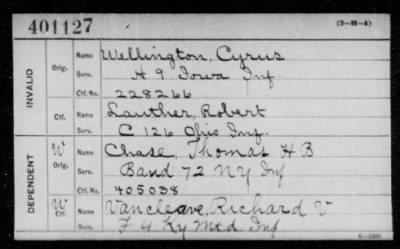 401127 (3-H-4)
INVALID
Orig.
Name Wellington, Cyrus
Serv. H 9 Iowa Inf.
Ctf. No. 228266
Ctf.
Name Lauther, Robert
Serv. C 126 Ohio Inf.
DEPENDENT
W Orig.
Name Chase, Thomas H B
Serv. Band 72 NY Inf
Ctf. No. 405038
W Ctf.
Name Vancleave, Richard V
Serv. F 4 Ky Mtd Inf